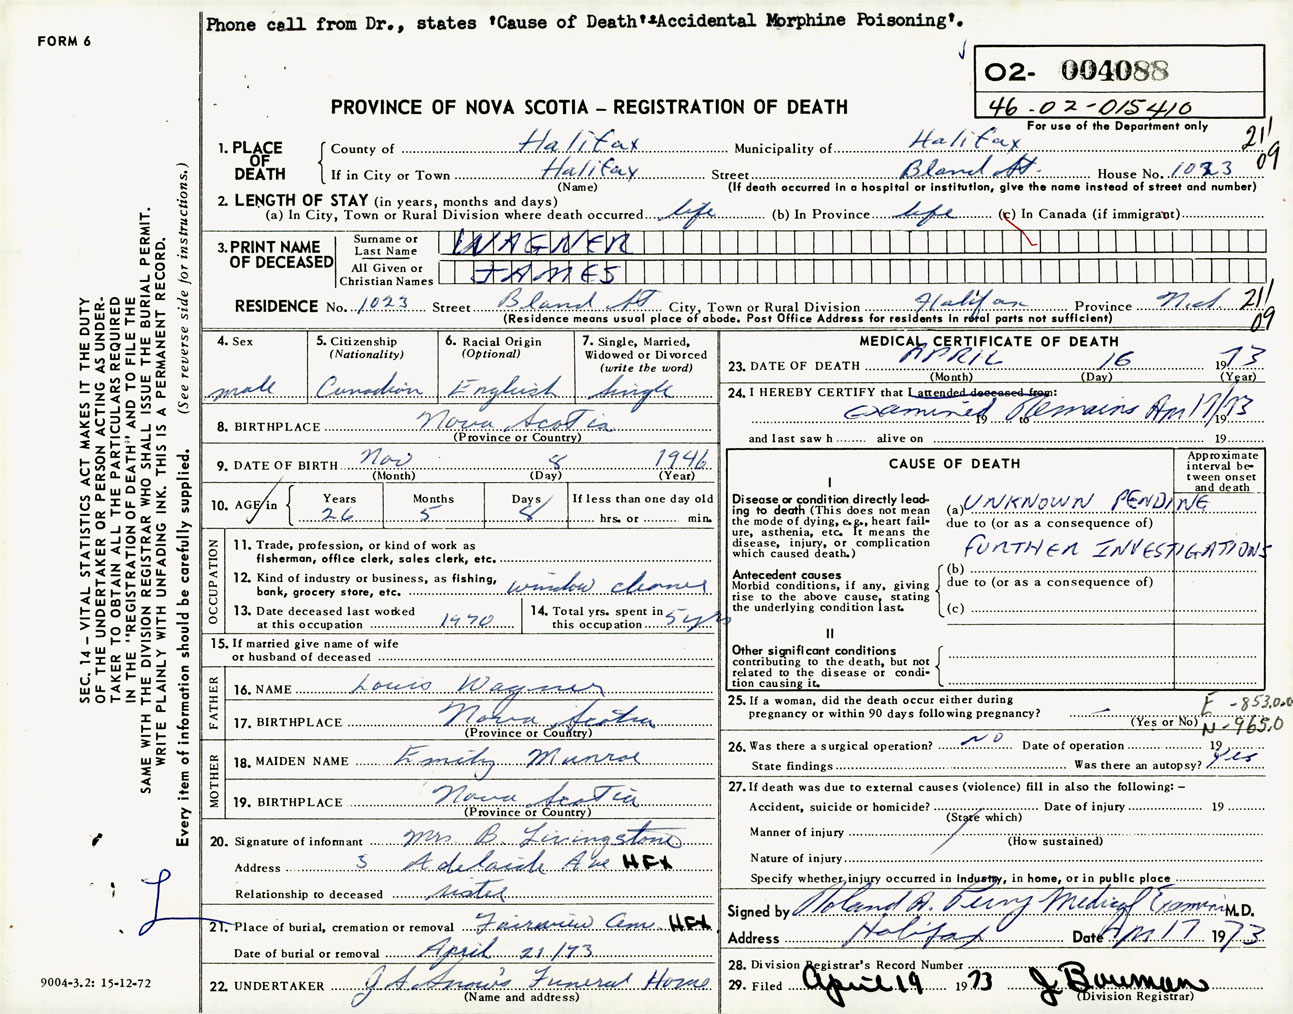 Phone call from Dr., states 'Cause of Death'"Accidental Morphine Poisoning'.
FORM 6
O2- 004088
46-02-015410
For use of the Department only
PROVINCE OF NOVA SCOTIA – REGISTRATION OF DEATH
1. PLACE OF DEATH
County of Halifax Municipality of Halifax 211 09
If in City or Town Halifax Street Bland St. House No. 1023
(Name) (If death occurred in a hospital or institution, give the name instead of street and number)
2. LENGTH OF STAY (in years, months and days)
(a) In City, Town or Rural Division where death occurred life (b) In Province life (c) In Canada (if immigrant)
3. PRINT NAME OF DECEASED
Surname or Last Name WAGNER
All Given or Christian Names JAMES
RESIDENCE No. 1023 Street Bland St City, Town or Rural Division Halifax Province 211 09
(Residence means usual place of abode. Post Office Address for residents in rural parts not sufficient)
4. Sex male
5. Citizenship (Nationality) Canadian
6. Racial Origin (Optional) English
7. Single, Married, Widowed or Divorced (write the word) single
8. BIRTHPLACE Nova Scotia
(Province or Country)
9. DATE OF BIRTH Nov 8 1946
(Month) (Day) (Year)
10. AGE in Years 26 Months 5 Days 8 If less than one day old hrs. or min.
OCCUPATION
11. Trade, profession, or kind of work as fisherman, office clerk, sales clerk, etc.
12. Kind of industry or business, as fishing, bank, grocery store, etc. window cleaner
13. Date deceased last worked at this occupation 1970
14. Total yrs. spent in this occupation 5 yrs
15. If married give name of wife or husband of deceased
FATHER
16. NAME Louis Wagner
17. BIRTHPLACE Nova Scotia
(Province or Country)
MOTHER
18. MAIDEN NAME Emily Munroe
19. BIRTHPLACE Nova Scotia
(Province or Country)
20. Signature of informant Mrs B. Livingstone
Address 3 Adelaide Ave HFX
Relationship to deceased sister
21. Place of burial, cremation or removal Fairview Cem. HFX
Date of burial or removal April 21/73
22. UNDERTAKER J A Snow's Funeral Home
(Name and address)
MEDICAL CERTIFICATE OF DEATH
23. DATE OF DEATH APRIL 16 1973
(Month) (Day) (Year)
24. I HEREBY CERTIFY that I attended deceased from:
examined Remains Apr 17/73
19 to 19
and last saw h alive on 19
CAUSE OF DEATH
Approximate interval between onset and death
I
Disease or condition directly leading to death (This does not mean the mode of dying, e.g., heart failure, asthenia, etc. It means the disease, injury, or complication which caused death.)
(a) UNKNOWN PENDING
due to (or as a consequence of)
FURTHER INVESTIGATIONS
Antecedent causes
Morbid conditions, if any, giving rise to the above cause, stating the underlying condition last.
(b)
due to (or as a consequence of)
(c)
II
Other significant conditions
contributing to the death, but not related to the disease or condition causing it.
25. If a woman, did the death occur either during pregnancy or within 90 days following pregnancy? –
(Yes or No)
E -853.0.0
N-965.0
26. Was there a surgical operation? NO Date of operation 19
State findings Was there an autopsy? Yes
27. If death was due to external causes (violence) fill in also the following: –
Accident, suicide or homicide? Date of injury 19
(State which)
Manner of injury
(How sustained)
Nature of injury
Specify whether injury occurred in Industry, in home, or in public place
Signed by Roland A. Perry Medical Examiner M.D.
Address Halifax Date Apr 17 1973
28. Division Registrar's Record Number
29. Filed April 19 1973 J Bowman
(Division Registrar)
SEC. 14 – VITAL STATISTICS ACT MAKES IT THE DUTY
OF THE UNDERTAKER OR PERSON ACTING AS UNDER-
TAKER TO OBTAIN ALL THE PARTICULARS REQUIRED
IN THE "REGISTRATION OF DEATH" AND TO FILE THE
SAME WITH THE DIVISION REGISTRAR WHO SHALL ISSUE THE BURIAL PERMIT.
WRITE PLAINLY WITH UNFADING INK. THIS IS A PERMANENT RECORD.
Every item of information should be carefully supplied. (See reverse side for instructions.)
L
9004-3.2: 15-12-72